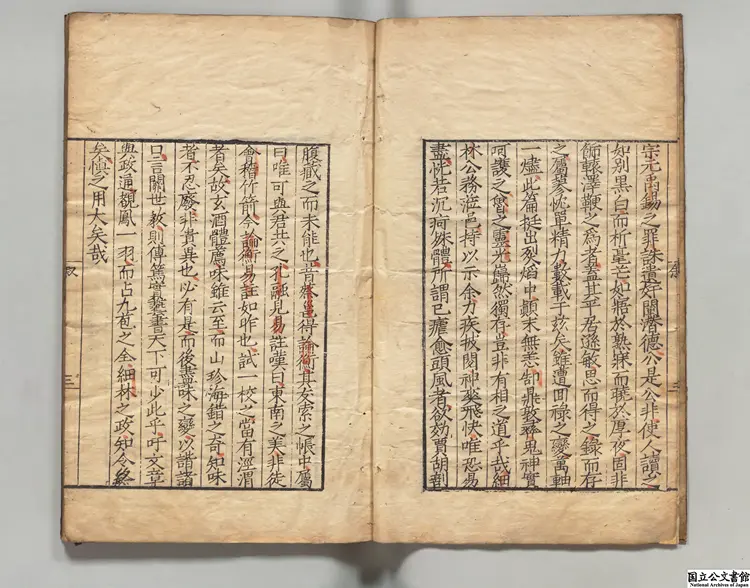 宗元禹錫之罪誅貴奸闡潛德公是公非使人讀之
如別黑白而析毫芒如寤於熟寐而曉於厚夜固非
飾轅澤鞭之為者蓋其平居遜敏思而得之錄而存
之屬蔘忱單精力數載于玆矣雖遭回祿之變萬軸
一燼此篇挺出烈焰中顛末無恙郜鼎敦彝鬼神實
呵護之魯之靈光巋然獨存豈非有相之道乎哉細
林公務涖邑持以示余力疾披閱神爽飛快唯恐易
盡恍若沉痾侏體所謂已瘧愈頭風者欲効賈胡剖
腹藏之而未能也昔蔡邕得論衡其友索之帳中屬
曰唯可與君共之孔融見易註嘆曰東南之美非徒
會稽竹箭今論衡易註如昨也試一校之當有涇渭
者矣故玄酒體薦味雖云至而山珍海錯之奇知味
者不忍廢非貴異也必有是而後盡味之變以諸諸
口言關世教則傳篇實繫書天下可少此乎吁文章
與政通覩鳳一羽而占九苞之全細林之政知令終
矣慎之用大矣哉
叙
三
国立公文書館
National Archives of Japan